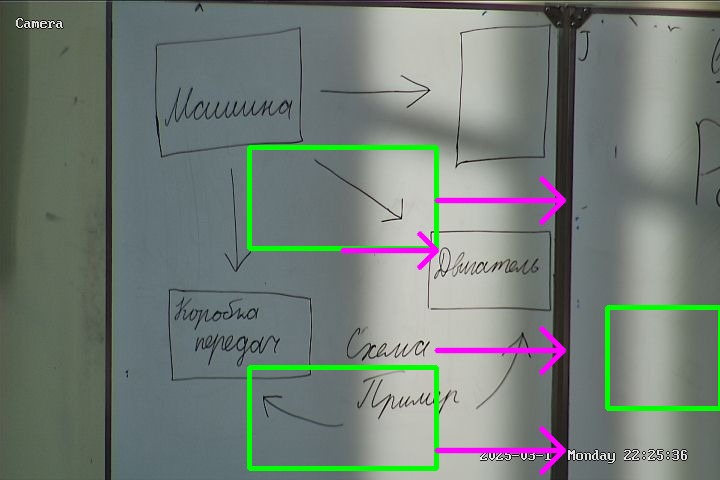 Camera
Машина
Двигатель
Коробка
передач
Схема
Пример
Monday 22:25:36